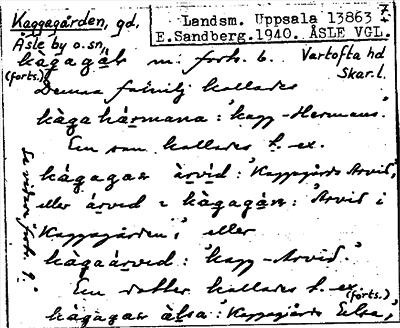 Kaggagården, gd.
Åsle by o. sn,
Landsm. Uppsala 13863 7.
E.Sandberg.1940. ÅSLE VGL.
kàgagán m. forts. 6. Vartofta hd
(forts.) Skar.l.
Denna familj kallades
kàgahármana: 'kagg-Hermans.'
En son kallades t. ex.
kàgagaṣ àrvid: 'Kaggagårds Arvid,'
eller àrvid i kàgagán: 'Arvid i
Kaggagården,' eller
kàgaárvid: 'kagg-Arvid.'
En dotter kallades t. ex.
(forts.)
kàgagaṣ àlsa: 'Kaggagårds Elsa,'
Se vidare forts. 9.